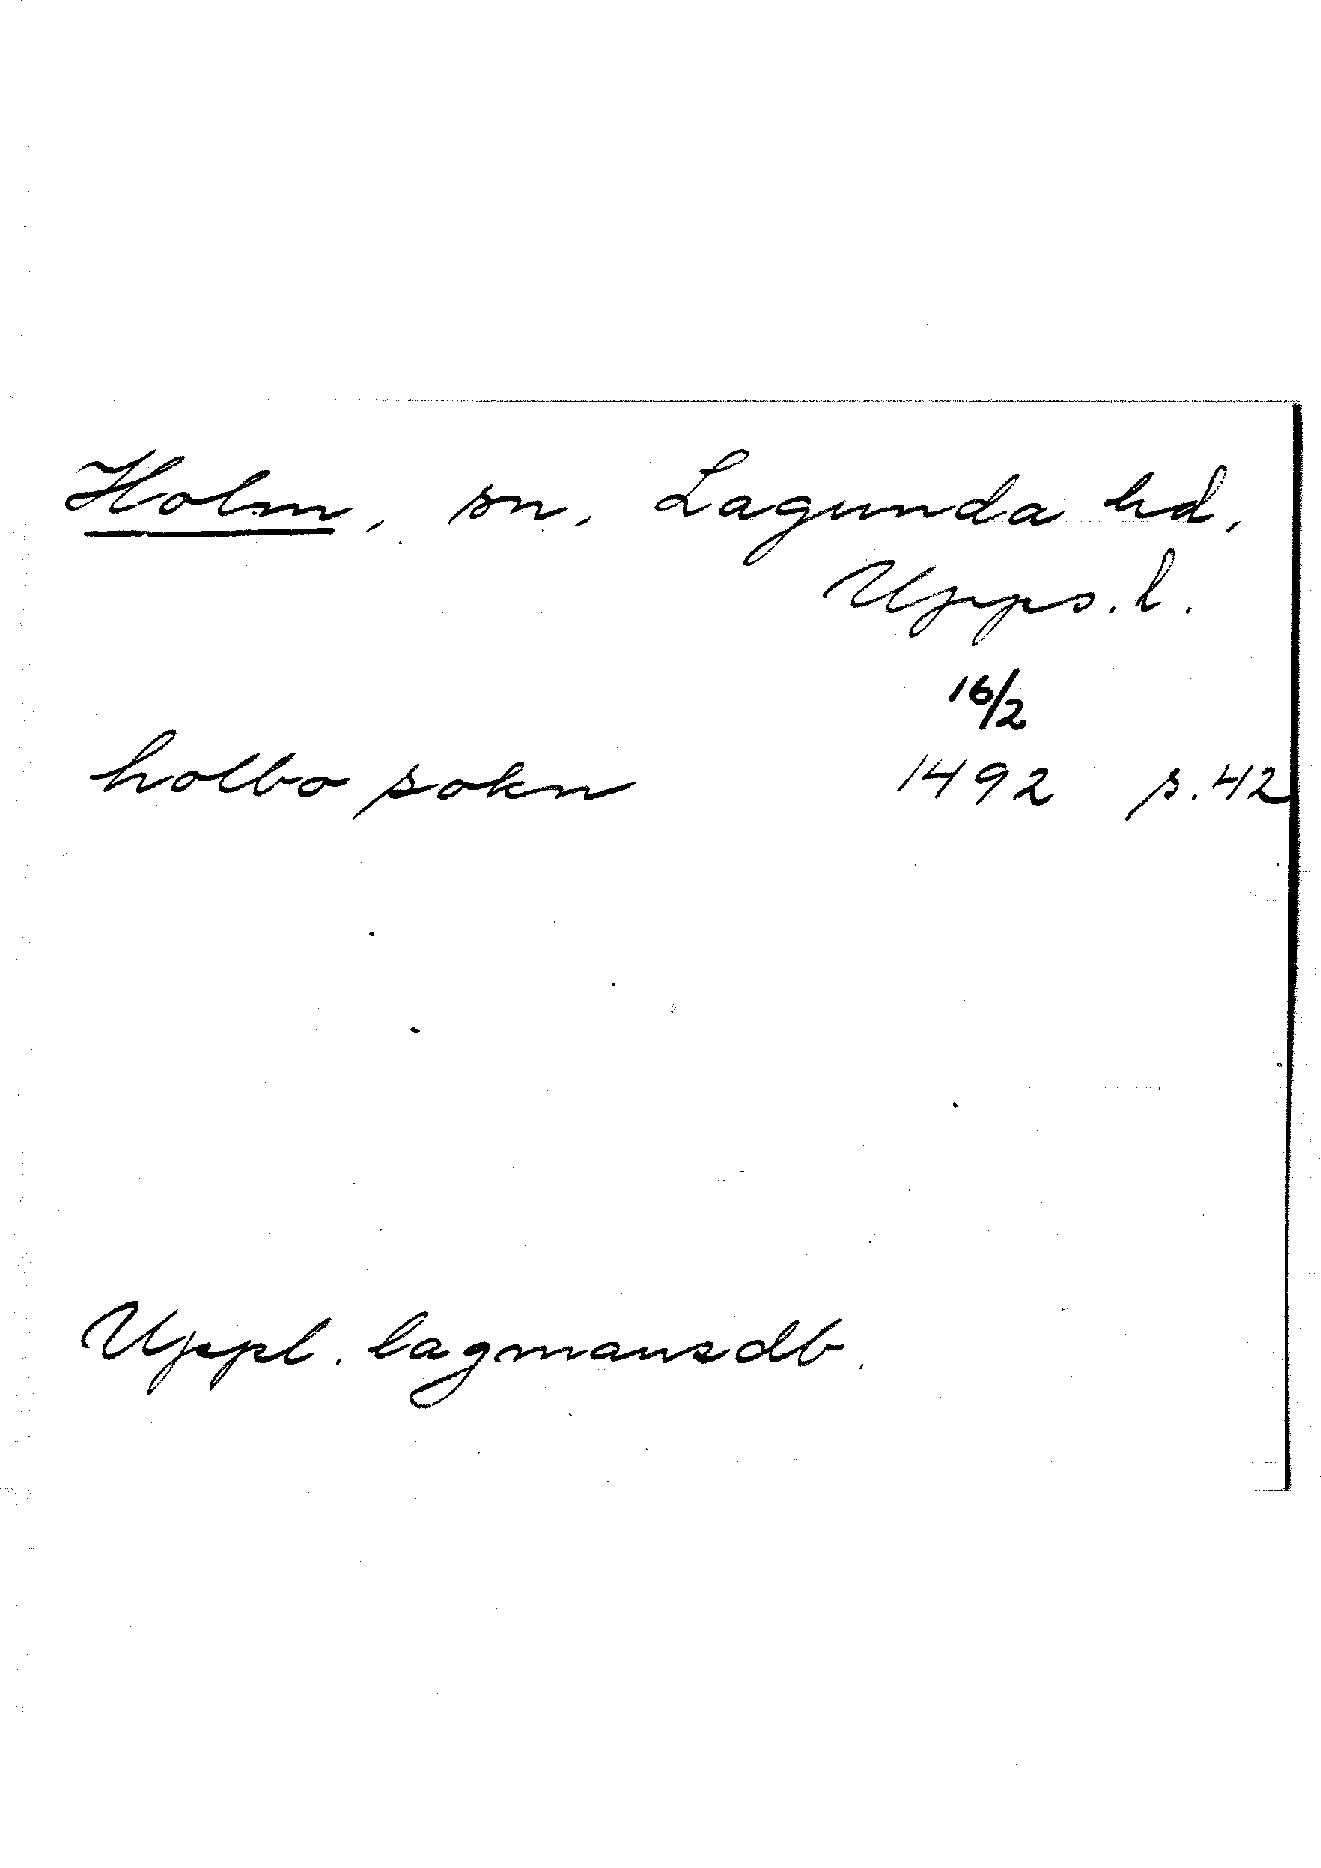 Holm, sn, Lagunda hd,
Upps. l.
16/2
holbo sokn 1492 s. 42
Uppl. lagmansdb.